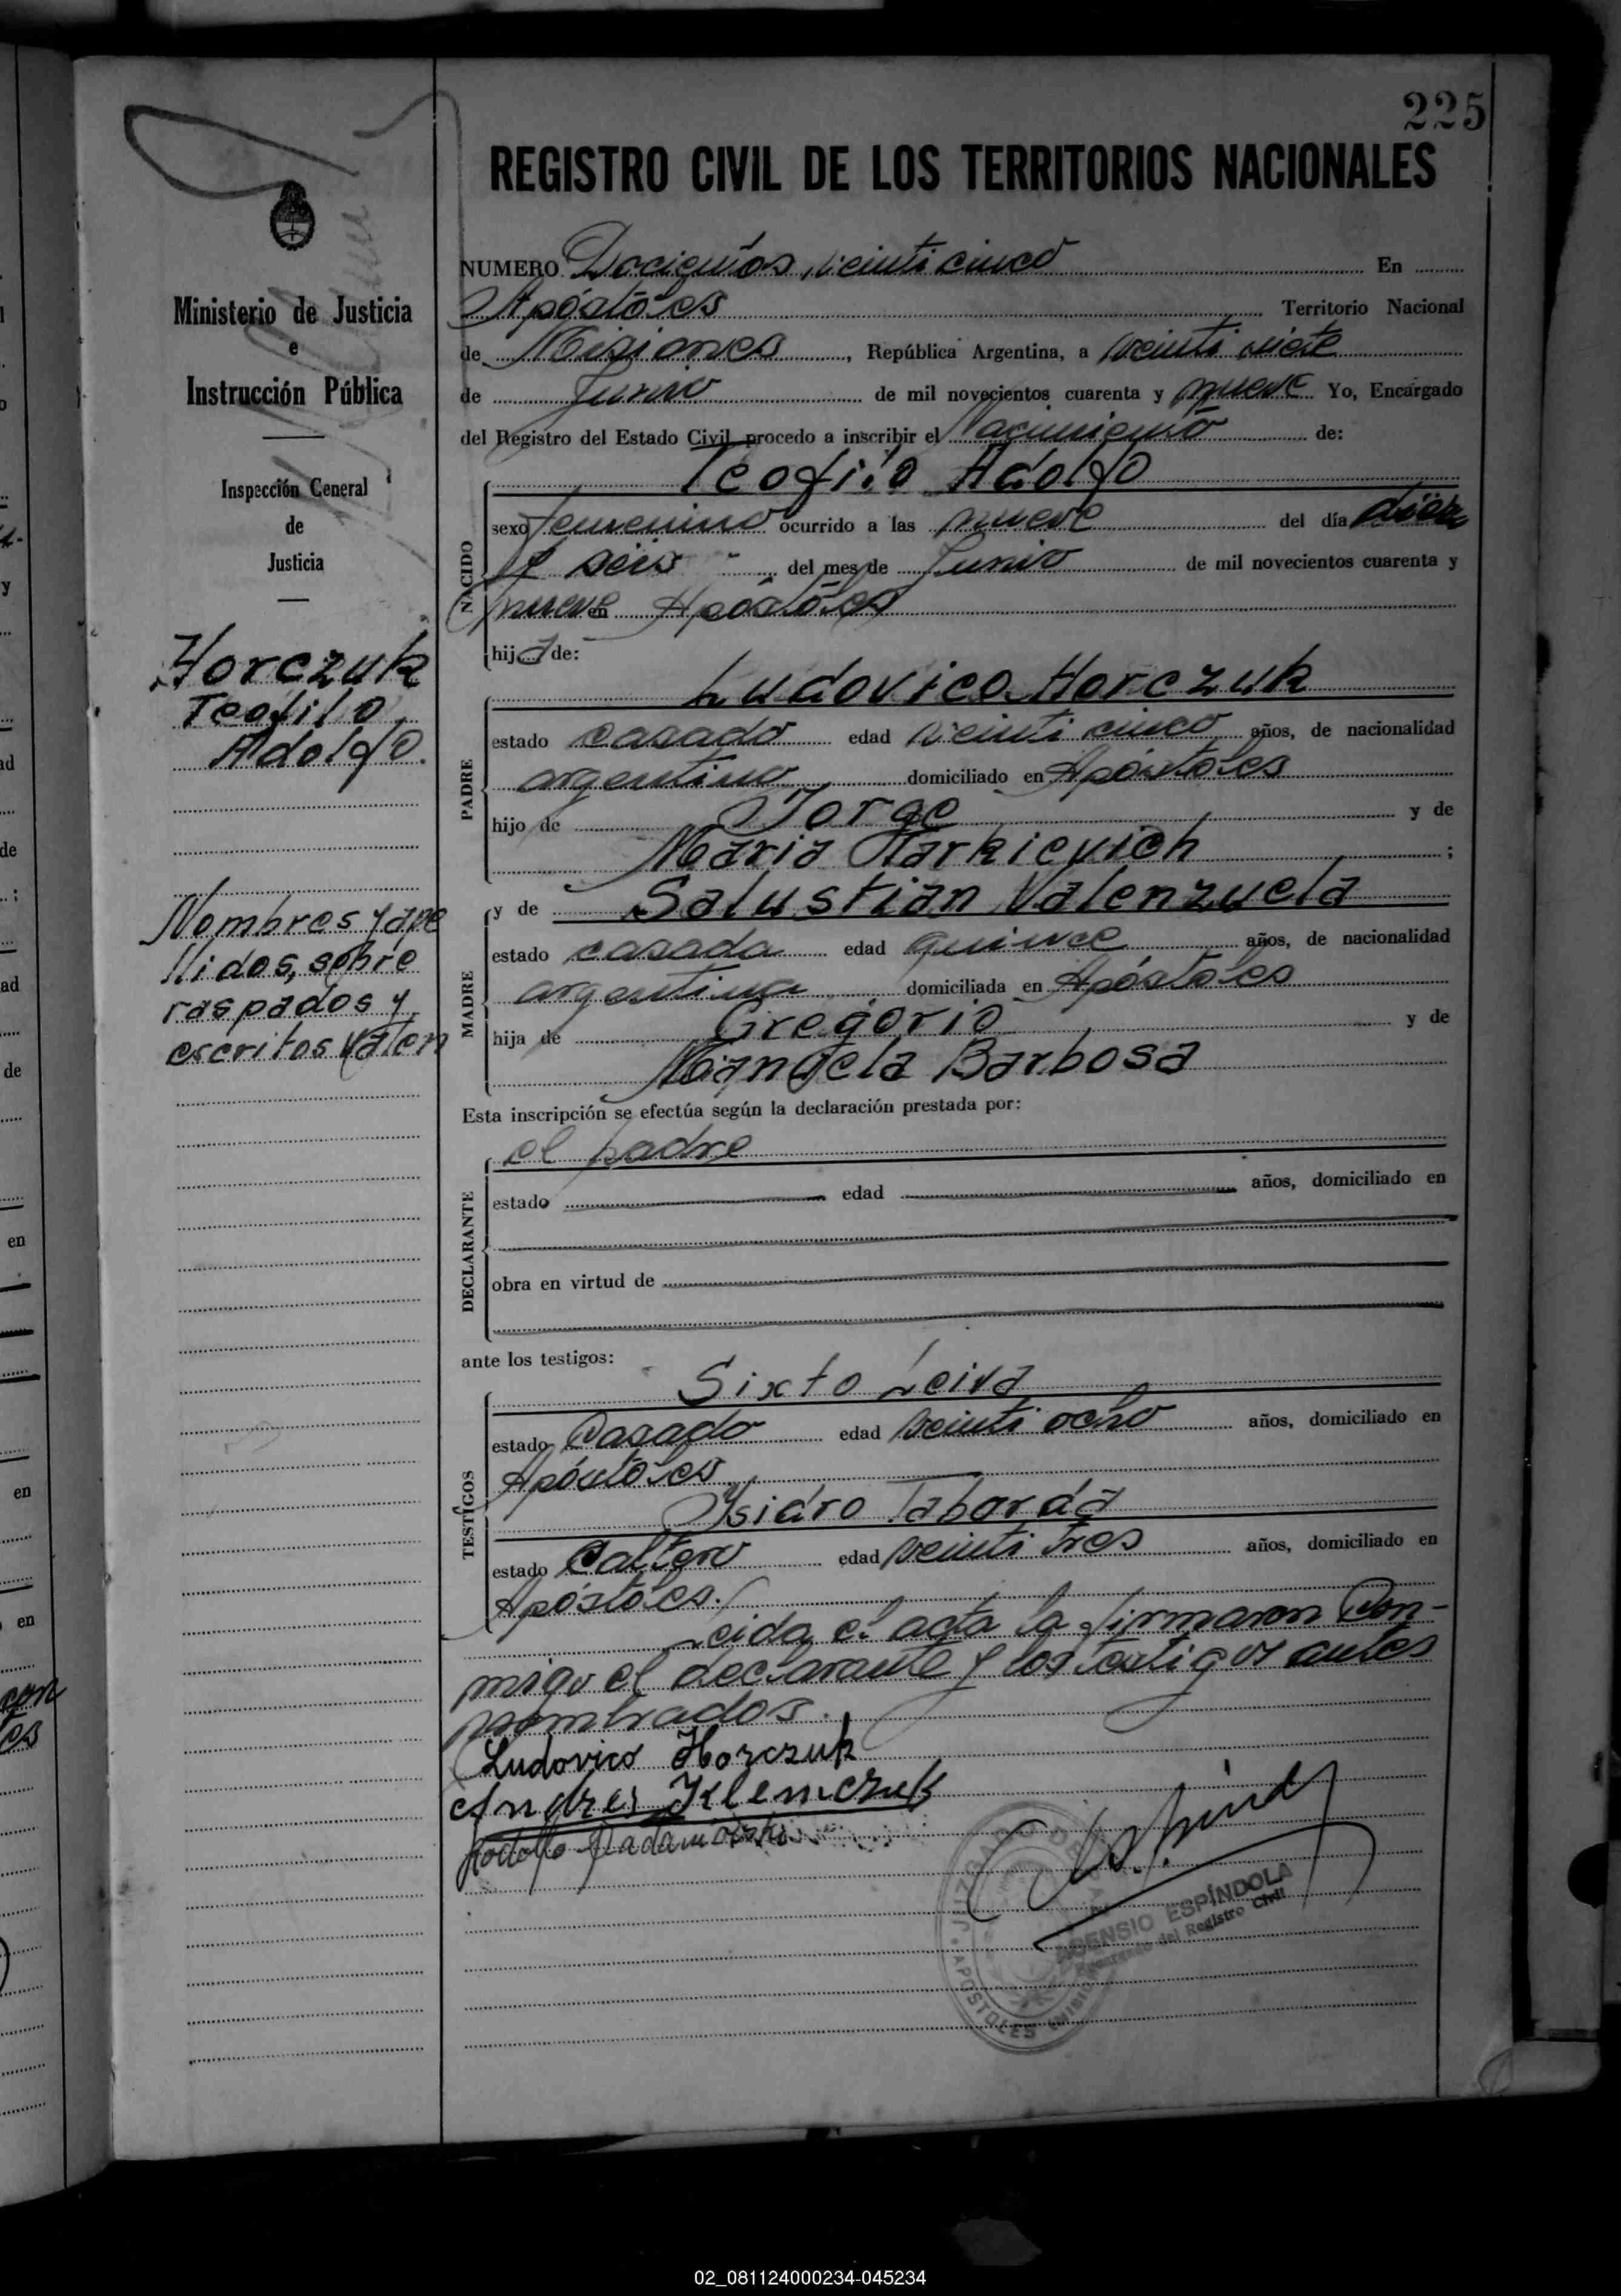 225
REGISTRO CIVIL DE LOS TERRITORIOS NACIONALES
NUMERO Docientos veinti cinco En
Apóstoles Territorio Nacional
de Misiones, República Argentina, a veinti siete
de Junio de mil novecientos cuarenta y nueve Yo, Encargado
del Registro del Estado Civil procedo a inscribir el Nacimiento de:
Teofilo Adolfo
NACIDO
sexo femenino ocurrido a las nueve del día diez
y seis del mes de Junio de mil novecientos cuarenta y
nueve en Apóstoles
hijo de:
Ludovico Horczuk
PADRE
estado casado edad veinti cinco años, de nacionalidad
argentino domiciliado en Apóstoles
hijo de Jorge y de
Maria Harkievich ;
y de Salustian Valenzuela
MADRE
estado casada edad quince años, de nacionalidad
argentina domiciliada en Apóstoles
hija de Gregorio y de
Mangela Barbosa
Esta inscripción se efectúa según la declaración prestada por:
el padre
DECLARANTE
estado edad años, domiciliado en
obra en virtud de
ante los testigos:
Sixto Leiva
TESTIGOS
estado Casado edad veinti ocho años, domiciliado en
Apóstoles
Ysidro Taborda
estado Soltero edad veinti tres años, domiciliado en
Apóstoles.
Leida el acta la firmaron con-
migo el declarante y los testigos antes
nombrados.
Ludovico Horczuk
Andres Klemczuk
Rodolfo
ASENSIO ESPÍNDOLA
Encargado del Registro Civil
JUZGADO DE PAZ
APOSTOLES
Ministerio de Justicia
e
Instrucción Pública
Inspección General
de
Justicia
Horczuk
Teofilo
Adolfo.
Nombres y ape
llidos, sobre
raspados y
escritos valen
02_081124000234-045234